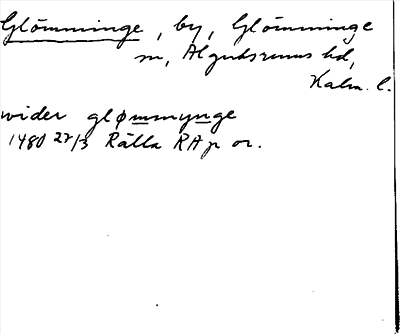 Glömminge, by, Glömminge
sn, Algutsrums hd,
Kalm. l.
wider glømmynge
1480 22/3 Rälla RAp or.